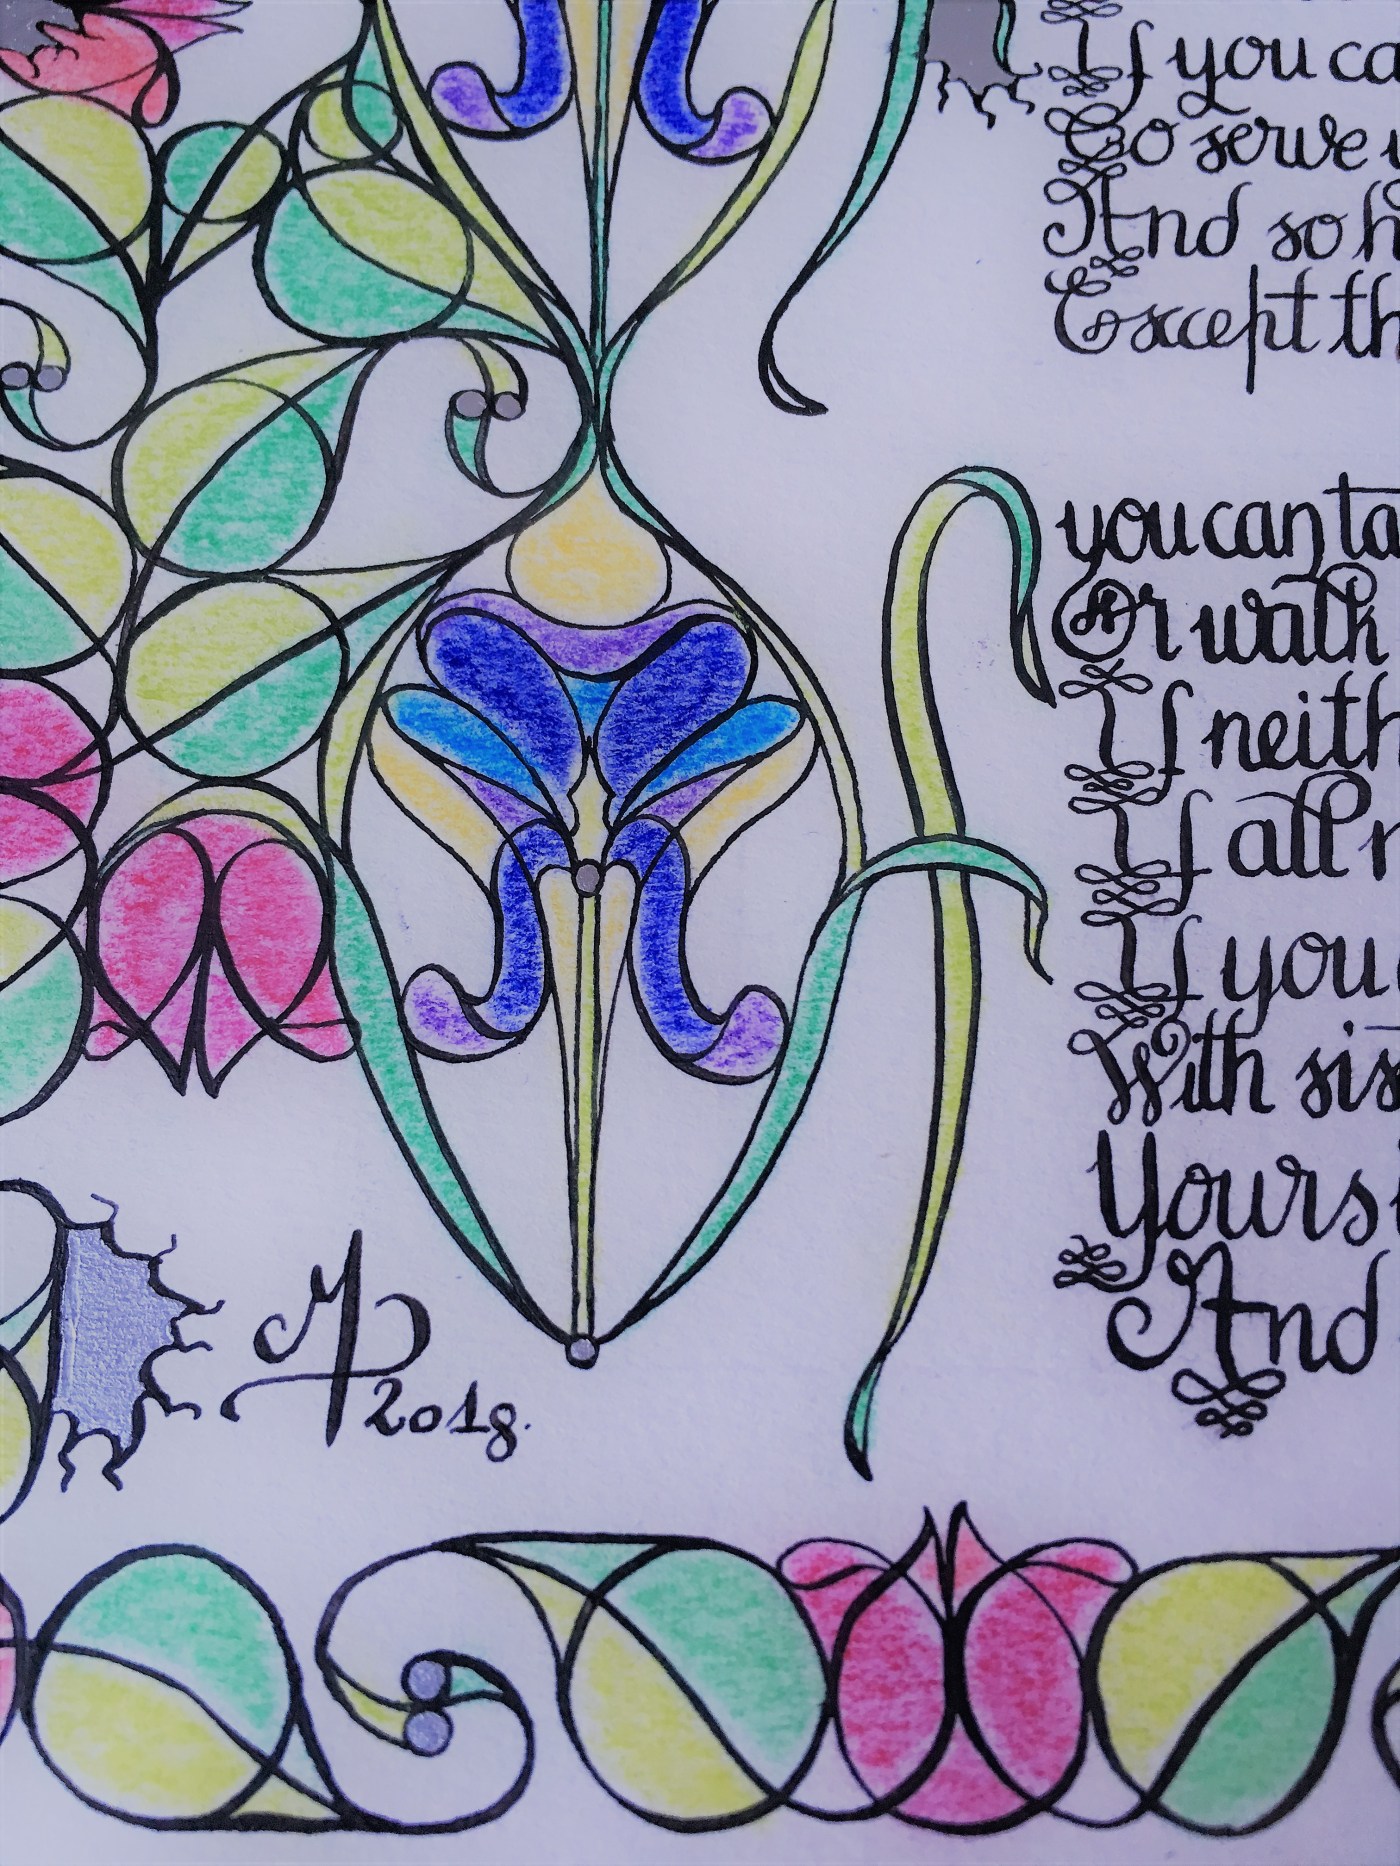 If you ca
To serve
And so h
Except th
you can ta
Or walk
If neith
If all
If you
With sis
Yours
And
MP
2018.